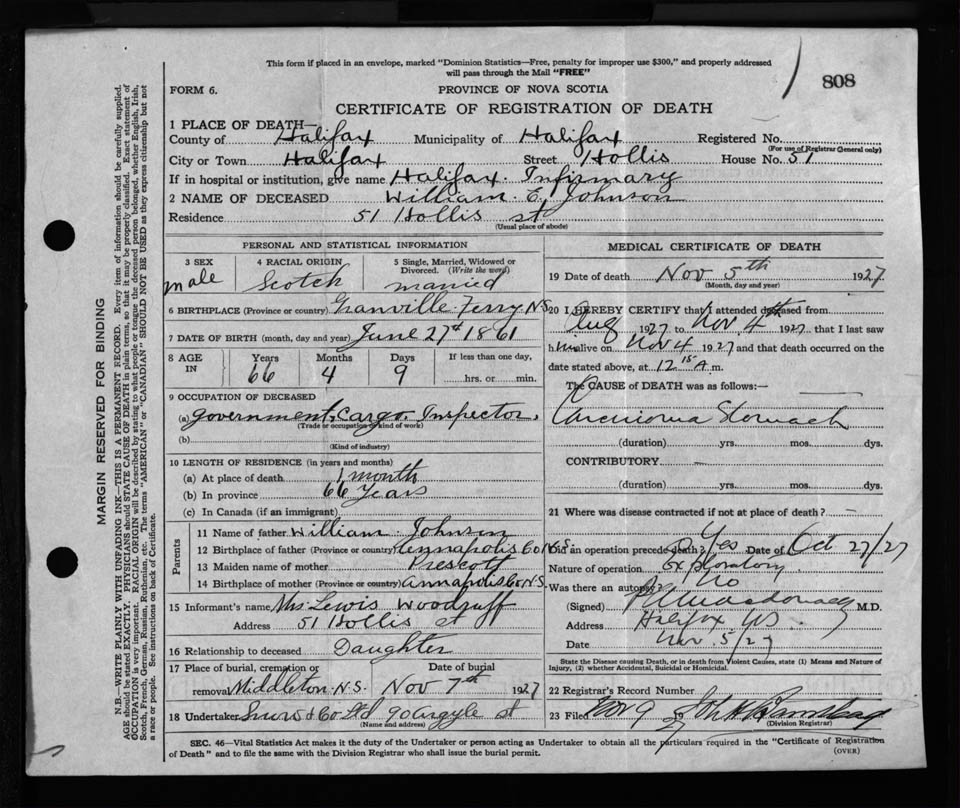 This form if placed in an envelope, marked "Dominion Statistics—Free, penalty for improper use $300," and properly addressed
will pass through the Mail "FREE"
808
FORM 6.
PROVINCE OF NOVA SCOTIA
CERTIFICATE OF REGISTRATION OF DEATH
1 PLACE OF DEATH—
County of Halifax Municipality of Halifax Registered No.
(For use of Registrar General only)
City or Town Halifax Street Hollis House No. 51
If in hospital or institution, give name Halifax Infirmary
2 NAME OF DECEASED William E. Johnson
Residence 51 Hollis st
(Usual place of abode)
PERSONAL AND STATISTICAL INFORMATION
3 SEX 4 RACIAL ORIGIN 5 Single, Married, Widowed or
Divorced. (Write the word)
male Scotch married
6 BIRTHPLACE (Province or country) Granville Ferry N.S
7 DATE OF BIRTH (month, day and year) June 27th 1861
8 AGE IN Years Months Days If less than one day,
66 4 9 hrs. or min.
9 OCCUPATION OF DECEASED
(a) government Cargo Inspector.
(Trade or occupation or kind of work)
(b)
(Kind of industry)
10 LENGTH OF RESIDENCE (in years and months)
(a) At place of death 1 month
(b) In province 66 Years
(c) In Canada (if an immigrant)
Parents
11 Name of father William Johnson
12 Birthplace of father (Province or country) Annapolis Co N.S.
13 Maiden name of mother Prescott
14 Birthplace of mother (Province or country) Annapolis Co N.S.
15 Informant's name Mrs Lewis Woodruff
Address 51 Hollis st
16 Relationship to deceased Daughter
17 Place of burial, cremation or Date of burial
removal Middleton N.S. Nov 7th 1927
18 Undertaker Snow & Co Ltd 90 Argyle st
(Name and address)
MEDICAL CERTIFICATE OF DEATH
19 Date of death Nov 5th 1927
(Month, day and year)
20 I HEREBY CERTIFY that I attended deceased from
Aug 1927 to Nov 4th 1927 that I last saw
him alive on Nov 4 1927 and that death occurred on the
date stated above, at 12 15 A m.
The CAUSE of DEATH was as follows:—
Carcinoma Stomach
(duration) yrs. mos. dys.
CONTRIBUTORY —
(duration) yrs. mos. dys.
21 Where was disease contracted if not at place of death? —
Did an operation precede death? Yes Date of Oct 27/27
Nature of operation Exploratory
Was there an autopsy? No
(Signed) M.D.
Address Halifax NS
Date Nov 5/27
State the Disease causing Death, or in death from Violent Causes, state (1) Means and Nature of
Injury, (2) whether Accidental, Suicidal or Homicidal.
22 Registrar's Record Number
23 Filed Nov 9 1927 John
(Division Registrar)
SEC. 46—Vital Statistics Act makes it the duty of the Undertaker or person acting as Undertaker to obtain all the particulars required in the "Certificate of Registration
of Death" and to file the same with the Division Registrar who shall issue the burial permit.
(OVER)
MARGIN RESERVED FOR BINDING
N.B.—WRITE PLAINLY WITH UNFADING INK—THIS IS A PERMANENT RECORD. Every item of information should be carefully supplied.
AGE should be stated EXACTLY. PHYSICIANS should STATE CAUSE OF DEATH in plain terms, so that it may be properly classified. Exact statement of
OCCUPATION is very important. RACIAL ORIGIN will be described by stating to what people or tongue the deceased person belonged, whether English, Irish,
Scotch, French, German, Russian, Ruthenian, etc. The terms "AMERICAN" or "CANADIAN" SHOULD NOT BE USED as they express citizenship but not
a race or people. See instructions on back of Certificate.